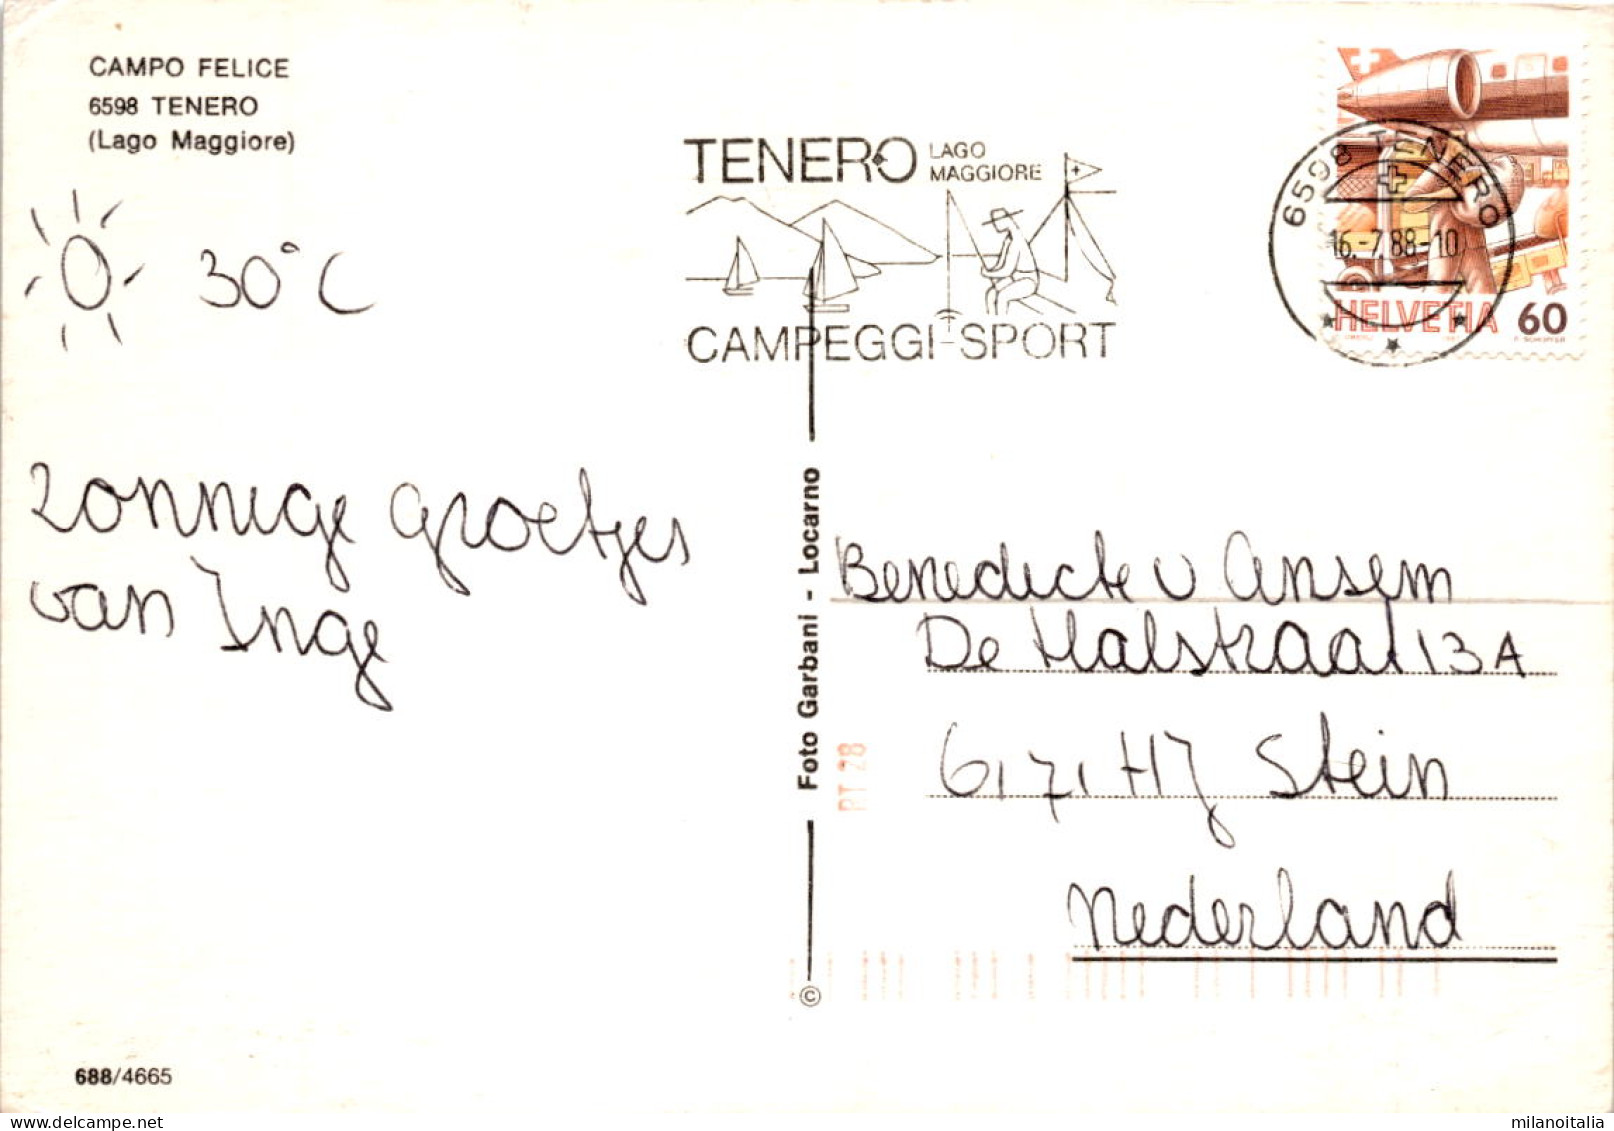 CAMPO FELICE
6598 TENERO
(Lago Maggiore)
30°C
zonnige groetjes
van Inge
688/4665
TENERO LAGO MAGGIORE
CAMPEGGI-SPORT
6598 TENERO
16.-7.88-10
HELVETIA 60
Foto Garbani - Locarno
©
RT 28
Benedicte v Ansem
De Halstraat 13A
6171 HJ Stein
Nederland
milanoitalia